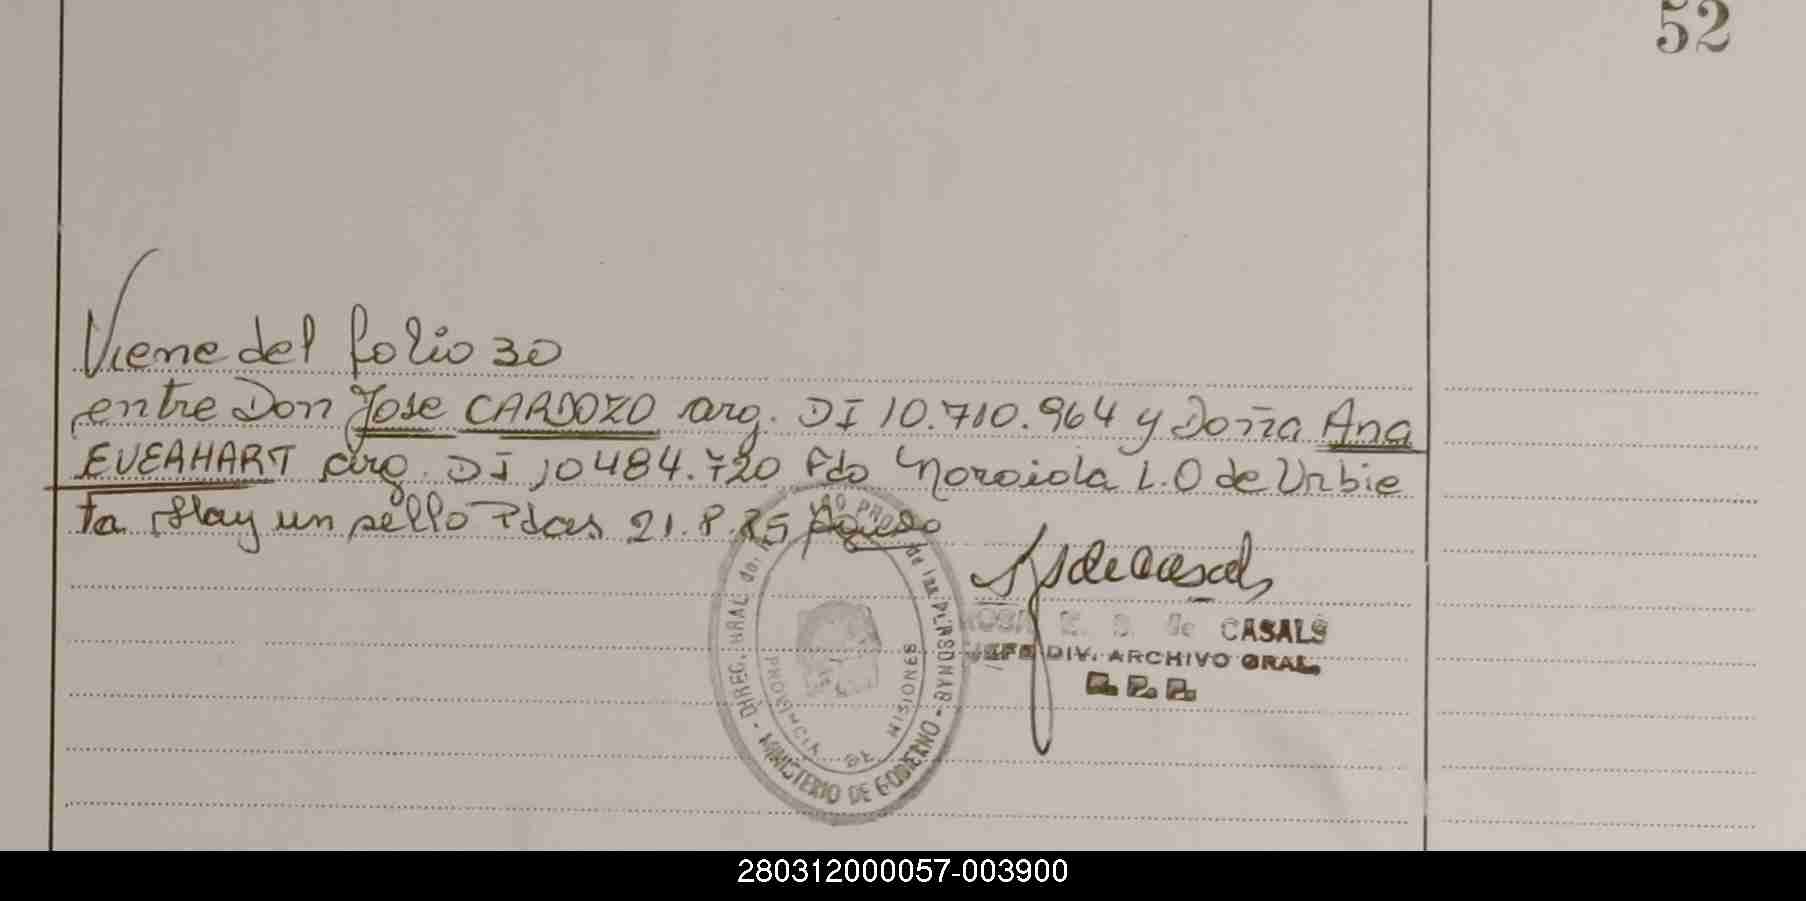 52
Viene del folio 30
entre Don Jose CARDOZO arg. DI 10.710.964 y Doña Ana
EVEAHART arg. DI 10484.720 Fdo L.O de Urbie
ta Hay un sello Pdas 21.8.85
DIREC. GRAL del PROV de las PERSONAS - MINISTERIO DE GOBIERNO -
PROVINCIA DE MISIONES
E. S. de CASALS
JEFE DIV. ARCHIVO GRAL.
R. P. P.
280312000057-003900